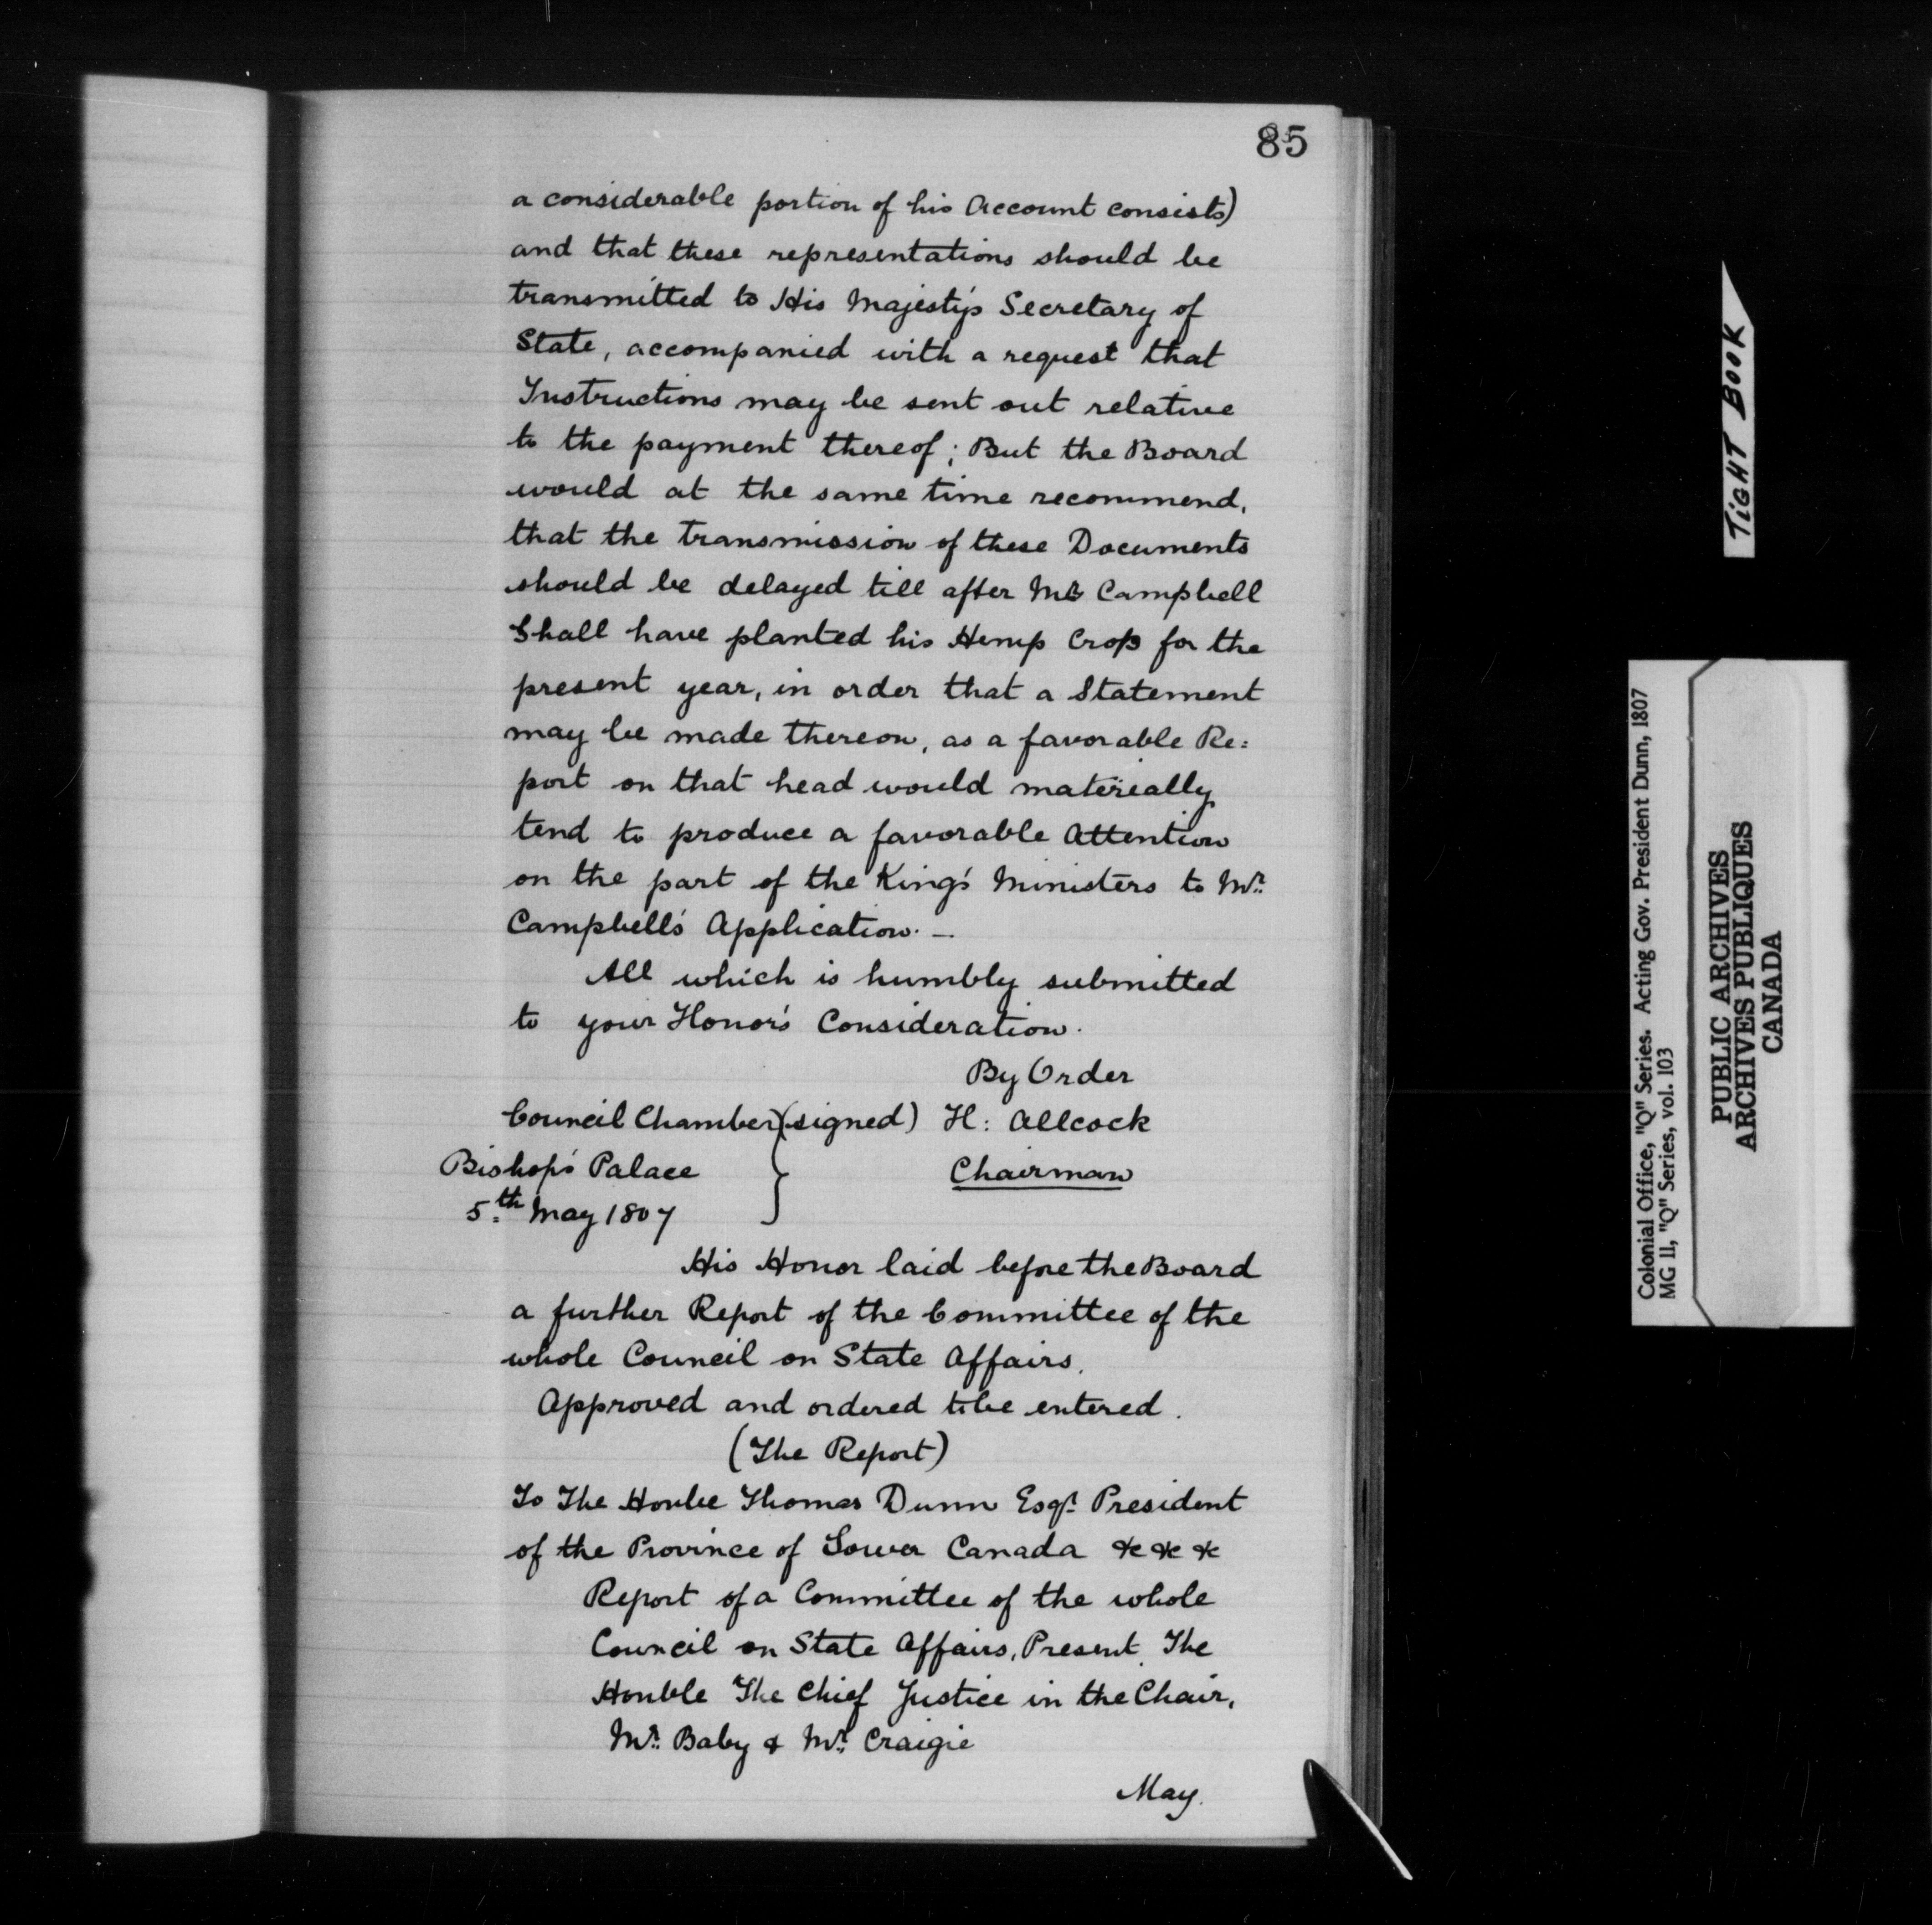 85
a considerable portion of his Account consists)
and that these representations should be
transmitted to His Majesty's Secretary of
State, accompanied with a request that
Instructions may be sent out relative
to the payment thereof; But the Board
would at the same time recommend,
that the transmission of these Documents
should be delayed till after Mr Campbell
Shall have planted his Hemp Crop for the
present year, in order that a Statement
may be made thereon, as a favorable Re:
port on that head would materially
tend to produce a favorable Attention
on the part of the King's Ministers to Mr.
Campbell's Application. —
All which is humbly submitted
to your Honor's Consideration.
By Order
Council Chamber (signed) H: Allcock
Bishop's Palace } Chairman
5.th May 1807
His Honor laid before the Board
a further Report of the Committee of the
whole Council on State Affairs.
Approved and ordered to be entered.
(The Report)
To The Honble Thomas Dunn Esqr. President
of the Province of Lower Canada &c &c &c
Report of a Committee of the whole
Council on State Affairs, Present. The
Honble The Chief Justice in the Chair,
Mr. Baby & Mr. Craigie
May.
TIGHT BOOK
Colonial Office, "Q" Series. Acting Gov. President Dunn, 1807
MG 11, "Q" Series, vol. 103
PUBLIC ARCHIVES
ARCHIVES PUBLIQUES
CANADA